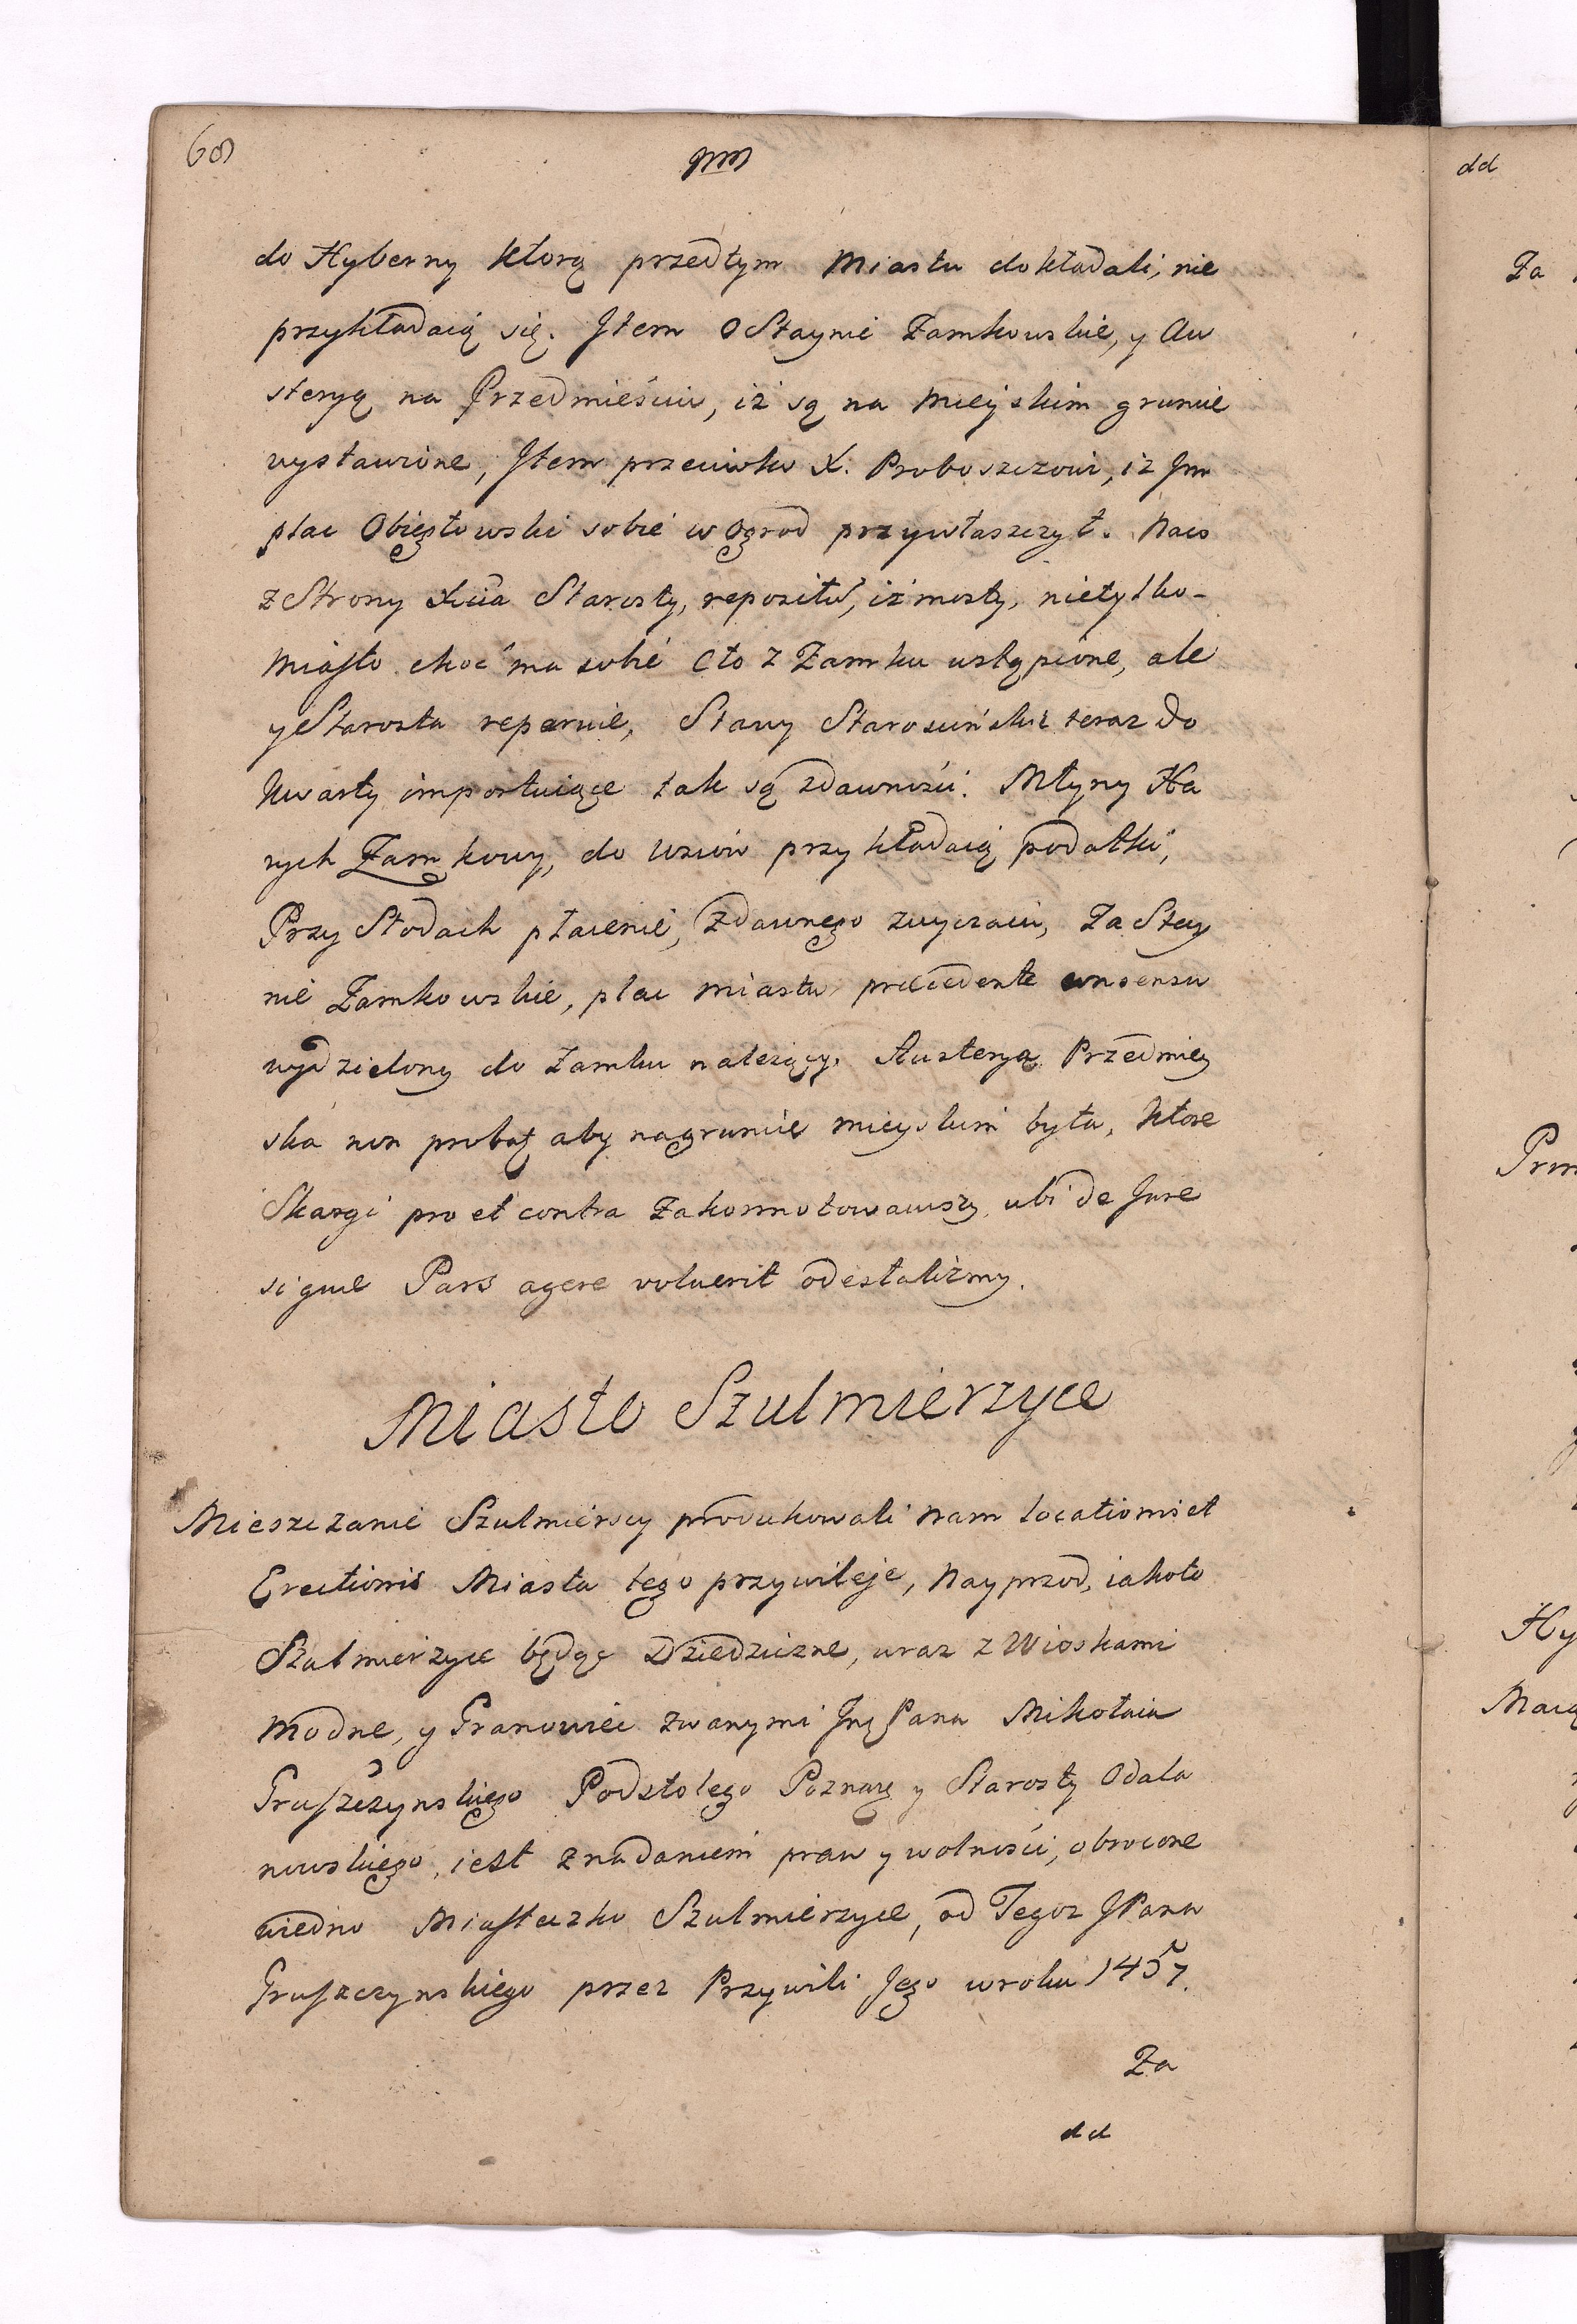 60
do Hyberny ktorą przedtym Miastu dokładali, nie
przykładaią się. Jtem o Staynie Zamkowskie, y Au
steryą na Przedmieściu, iż są na Mieyskim gruncie
wystawione, Jtem przeciwko X. Proboszczowi, iż Jm
plac Obięstowski sobie w ogrod przywłaszczył. Naco
z Strony Xcia Starosty, repositū, iż mosty, nietylko-
Miasto choć ma sobie Cło z Zamku ustąpione, ale
y Starosta reparuie, Stawy Starościńskie teraz do
kwarty importuiące tak są zdawności. Młyny Ha
nych Zamkowy, do Uzciow przykładaią podatki,
Przy Słodach płacenie, z dawnego zwyczaiu, Za Stay
nie Zamkowskie, plac miastu praecedente consensu
wydzielony do Zamku należący. Austerya Przedmiey
ska non probat aby nagruncie mieyskim była, ktore
Skargi pro et contra Zakonnotowawszy ubi de Jure
si quae Pars agere voluerit odesłaliżmy.
Miasto Szulmierzyce
Mieszczanie Szulmierscy produkowali nam Locationis et
Erectionis Miasta tego przywileje, Nayprzod, iakoto
Szulmierzyce będąc Dziedziczne, uraz z Wioskami
Modne, y Granowiec zwanymi Jmę Pana Mikołaia
Gruszczynskiego Podstolego Poznarz y Starosty Odala
nowskiego, iest z nadaniem praw y wolności, obrocone
wiedno Miasteczko Szulmierzyce, od Tegoz JPana
Gruszczynskiego przez Przywili Jego w roku 1457.
Za
dd
dd
Za
Prm
Hy